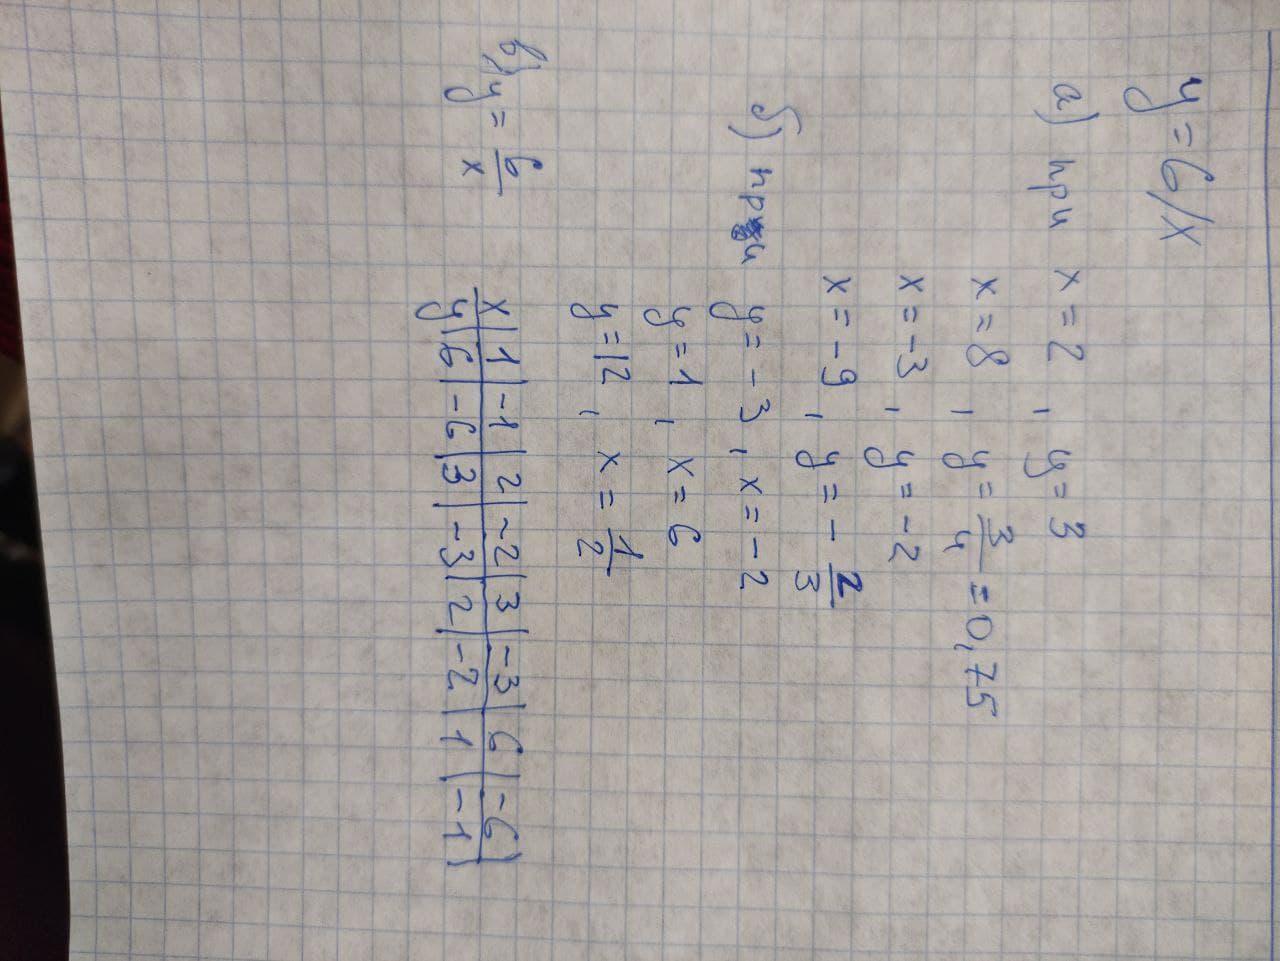 y = 6/x
а) при x = 2 , y = 3
x = 8 , y = 3/4 = 0,75
x = -3 , y = -2
x = -9 , y = - 2/3
б) при y = -3 , x = -2
y = 1 , x = 6
y = 12 , x = 1/2
в) y = 6/x
x | 1 | -1 | 2 | -2 | 3 | -3 | 6 | -6 |
y | 6 | -6 | 3 | -3 | 2 | -2 | 1 | -1 |